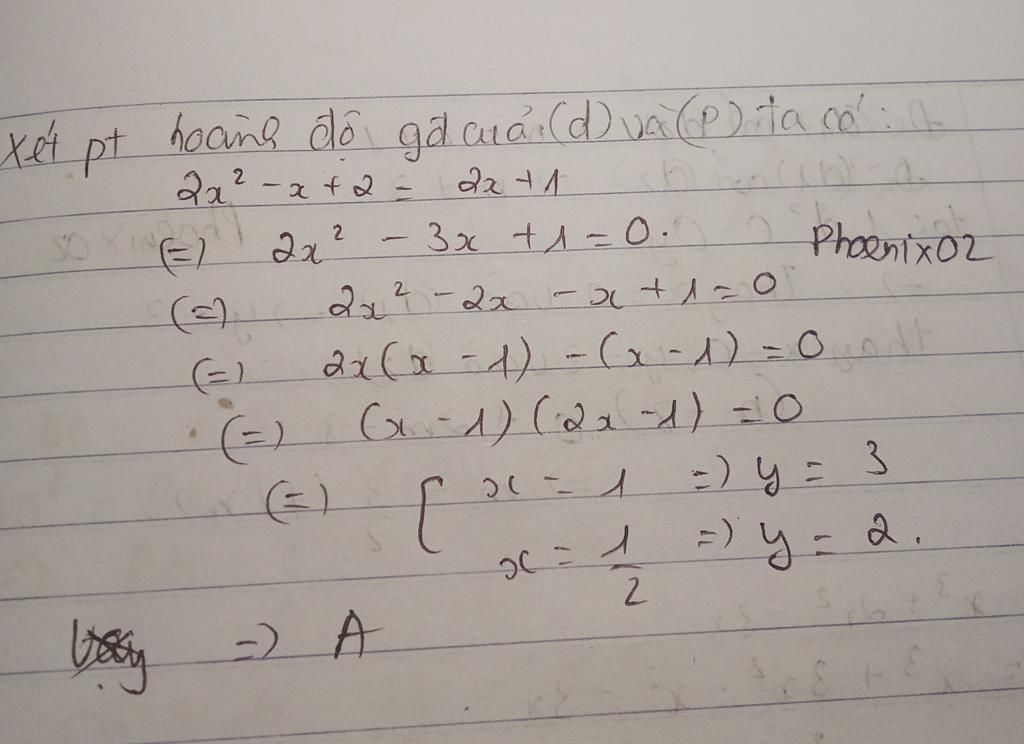 Xét pt hoành độ gđ của (d) và (P) ta có:
2x² - x + 2 = 2x + 1
(=) 2x² - 3x + 1 = 0.
Phoenix02
(=) 2x² - 2x - x + 1 = 0
(=) 2x(x - 1) - (x - 1) = 0
(=) (x - 1)(2x - 1) = 0
(=) [ x = 1 => y = 3
x = 1/2 => y = 2.
=> A